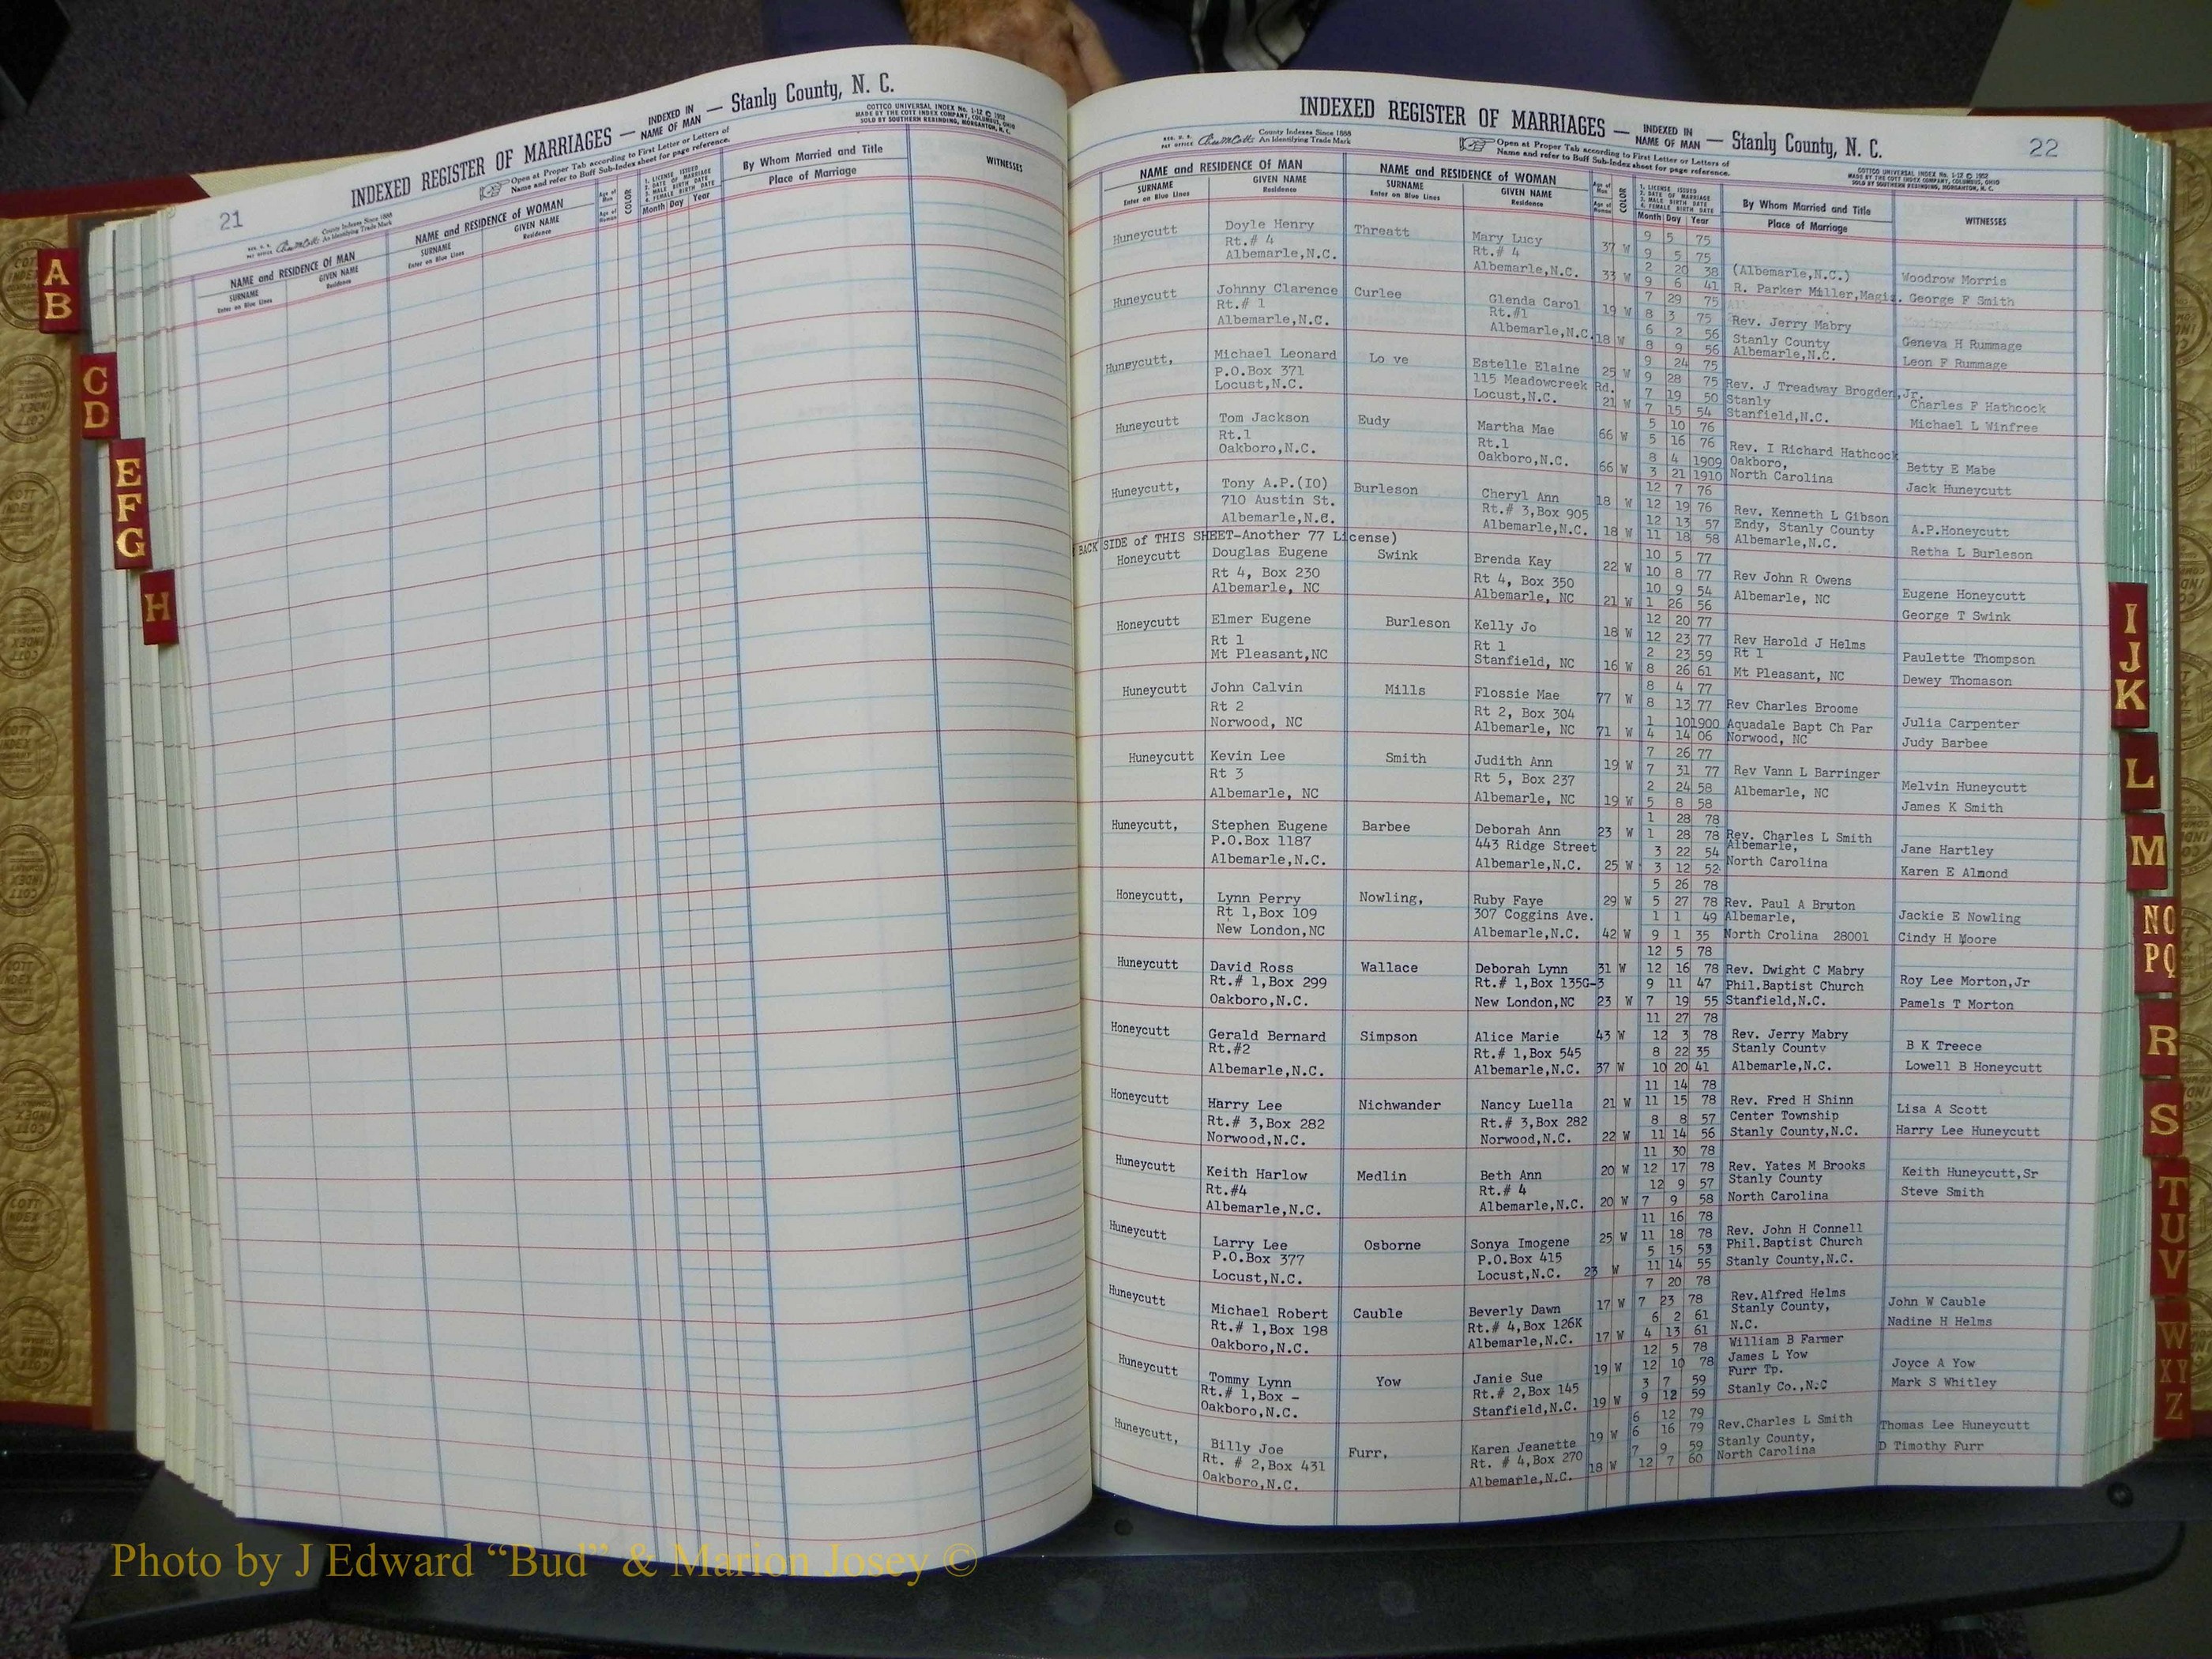 21
INDEXED REGISTER OF MARRIAGES — INDEXED IN NAME OF MAN — Stanly County, N. C.
County Indexes Since 1888
An Identifying Trade Mark
Open at Proper Tab according to First Letter or Letters of
Name and refer to Buff Sub-Index sheet for page reference.
COTTCO UNIVERSAL INDEX No. 1-12 © 1952
MADE BY THE COTT INDEX COMPANY, COLUMBUS, OHIO
SOLD BY SOUTHERN REBINDING, MORGANTON, N. C.
NAME and RESIDENCE OF MAN
SURNAME
Enter on Blue Lines
GIVEN NAME
Residence
NAME and RESIDENCE OF WOMAN
SURNAME
Enter on Blue Lines
GIVEN NAME
Residence
Age of Man
Age of Woman
COLOR
1. LICENSE ISSUED
2. DATE OF MARRIAGE
3. MALE BIRTH DATE
4. FEMALE BIRTH DATE
Month Day Year
By Whom Married and Title
Place of Marriage
WITNESSES
22
INDEXED REGISTER OF MARRIAGES — INDEXED IN NAME OF MAN — Stanly County, N. C.
REG. U. S. PAT OFFICE
County Indexes Since 1888
An Identifying Trade Mark
Open at Proper Tab according to First Letter or Letters of
Name and refer to Buff Sub-Index sheet for page reference.
COTTCO UNIVERSAL INDEX No. 1-12 © 1952
MADE BY THE COTT INDEX COMPANY, COLUMBUS, OHIO
SOLD BY SOUTHERN REBINDING, MORGANTON, N. C.
NAME and RESIDENCE OF MAN
SURNAME
Enter on Blue Lines
GIVEN NAME
Residence
NAME and RESIDENCE OF WOMAN
SURNAME
Enter on Blue Lines
GIVEN NAME
Residence
Age of Man
Age of Woman
COLOR
1. LICENSE ISSUED
2. DATE OF MARRIAGE
3. MALE BIRTH DATE
4. FEMALE BIRTH DATE
Month Day Year
By Whom Married and Title
Place of Marriage
WITNESSES
Huneycutt Doyle Henry Threatt Mary Lucy 37 W 9 5 75
Rt.# 4 Rt.# 4 9 5 75
Albemarle,N.C. Albemarle,N.C. 33 W 2 20 38 (Albemarle,N.C.) Woodrow Morris
9 6 41 R. Parker Miller,Magis. George F Smith
Huneycutt Johnny Clarence Curlee Glenda Carol 19 W 7 29 75
Rt.# 1 Rt.#1 8 3 75 Rev. Jerry Mabry
Albemarle,N.C. Albemarle,N.C. 18 W 6 2 56 Stanly County Geneva H Rummage
8 9 56 Albemarle,N.C. Leon F Rummage
Huneycutt, Michael Leonard Lo ve Estelle Elaine 25 W 9 24 75
P.O.Box 371 115 Meadowcreek Rd. 9 28 75 Rev. J Treadway Brogden,Jr.
Locust,N.C. Locust,N.C. 21 W 7 19 50 Stanly Charles F Hathcock
7 15 54 Stanfield,N.C. Michael L Winfree
Huneycutt Tom Jackson Eudy Martha Mae 66 W 5 10 76
Rt.1 Rt.1 5 16 76 Rev. I Richard Hathcock
Oakboro,N.C. Oakboro,N.C. 66 W 8 4 1909 Oakboro, Betty E Mabe
3 21 1910 North Carolina Jack Huneycutt
Huneycutt, Tony A.P.(IO) Burleson Cheryl Ann 18 W 12 7 76
710 Austin St. Rt.# 3,Box 905 12 19 76 Rev. Kenneth L Gibson
Albemarle,N.C. Albemarle,N.C. 18 W 12 13 57 Endy, Stanly County A.P.Honeycutt
11 18 58 Albemarle,N.C. Retha L Burleson
BACK SIDE of THIS SHEET-Another 77 License)
Honeycutt Douglas Eugene Swink Brenda Kay 22 W 10 5 77
Rt 4, Box 230 Rt 4, Box 350 10 8 77 Rev John R Owens
Albemarle, NC Albemarle, NC 21 W 10 9 54 Albemarle, NC Eugene Honeycutt
1 26 56 George T Swink
Honeycutt Elmer Eugene Burleson Kelly Jo 18 W 12 20 77
Rt 1 Rt 1 12 23 77 Rev Harold J Helms
Mt Pleasant,NC Stanfield, NC 16 W 2 23 59 Rt 1 Paulette Thompson
8 26 61 Mt Pleasant, NC Dewey Thomason
Huneycutt John Calvin Mills Flossie Mae 77 W 8 4 77
Rt 2 Rt 2, Box 304 8 13 77 Rev Charles Broome
Norwood, NC Albemarle, NC 71 W 1 10 1900 Aquadale Bapt Ch Par Julia Carpenter
4 14 06 Norwood, NC Judy Barbee
Huneycutt Kevin Lee Smith Judith Ann 19 W 7 26 77
Rt 3 Rt 5, Box 237 7 31 77 Rev Vann L Barringer
Albemarle, NC Albemarle, NC 19 W 2 24 58 Albemarle, NC Melvin Huneycutt
5 8 58 James K Smith
Huneycutt, Stephen Eugene Barbee Deborah Ann 23 W 1 28 78
P.O.Box 1187 443 Ridge Street 1 28 78 Rev. Charles L Smith
Albemarle,N.C. Albemarle,N.C. 25 W 3 22 54 Albemarle, Jane Hartley
3 12 52 North Carolina Karen E Almond
Honeycutt, Lynn Perry Nowling, Ruby Faye 29 W 5 26 78
Rt 1,Box 109 307 Coggins Ave. 5 27 78 Rev. Paul A Bruton
New London,NC Albemarle,N.C. 42 W 1 1 49 Albemarle, Jackie E Nowling
9 1 35 North Crolina 28001 Cindy H Moore
Huneycutt David Ross Wallace Deborah Lynn 31 W 12 5 78
Rt.# 1,Box 299 Rt.# 1,Box 135G-3 12 16 78 Rev. Dwight C Mabry
Oakboro,N.C. New London,NC 23 W 9 11 47 Phil.Baptist Church Roy Lee Morton,Jr
7 19 55 Stanfield,N.C. Pamels T Morton
Honeycutt Gerald Bernard Simpson Alice Marie 43 W 11 27 78
Rt.#2 Rt.# 1,Box 545 12 3 78 Rev. Jerry Mabry
Albemarle,N.C. Albemarle,N.C. 37 W 8 22 35 Stanly County B K Treece
10 20 41 Albemarle,N.C. Lowell B Honeycutt
Honeycutt Harry Lee Nichwander Nancy Luella 21 W 11 14 78
Rt.# 3,Box 282 Rt.# 3,Box 282 11 15 78 Rev. Fred H Shinn
Norwood,N.C. Norwood,N.C. 22 W 8 8 57 Center Township Lisa A Scott
11 14 56 Stanly County,N.C. Harry Lee Huneycutt
Huneycutt Keith Harlow Medlin Beth Ann 20 W 11 30 78
Rt.#4 Rt.# 4 12 17 78 Rev. Yates M Brooks Keith Huneycutt,Sr
Albemarle,N.C. Albemarle,N.C. 20 W 12 9 57 Stanly County Steve Smith
7 9 58 North Carolina
Huneycutt Larry Lee Osborne Sonya Imogene 25 W 11 16 78
P.O.Box 377 P.O.Box 415 11 18 78 Rev. John H Connell
Locust,N.C. Locust,N.C. 23 W 5 15 53 Phil.Baptist Church
11 14 55 Stanly County,N.C.
Huneycutt Michael Robert Cauble Beverly Dawn 17 W 7 20 78
Rt.# 1,Box 198 Rt.# 4,Box 126K 7 23 78 Rev.Alfred Helms John W Cauble
Oakboro,N.C. Albemarle,N.C. 17 W 6 2 61 Stanly County, Nadine H Helms
4 13 61 N.C.
Huneycutt Tommy Lynn Yow Janie Sue 19 W 12 5 78 William B Farmer
Rt.# 1,Box - Rt.# 2,Box 145 12 10 78 James L Yow Joyce A Yow
Oakboro,N.C. Stanfield,N.C. 19 W 3 7 59 Furr Tp. Mark S Whitley
9 12 59 Stanly Co.,N.C
Huneycutt, Billy Joe Furr, Karen Jeanette 19 W 6 12 79
Rt. # 2,Box 431 Rt. # 4,Box 270 6 16 79 Rev.Charles L Smith Thomas Lee Huneycutt
Oakboro,N.C. Albemarle,N.C. 18 W 7 9 59 Stanly County, D Timothy Furr
12 7 60 North Carolina
A B
C D
E F G
H
I J K
L
M
N O P Q
R
S
T U V
W X Y Z
Photo by J Edward “Bud” & Marion Josey ©